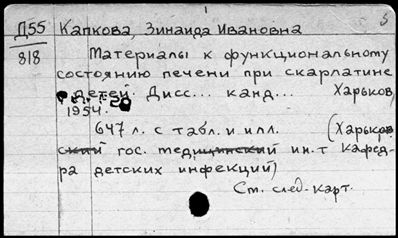 Д55 Капкова, Зинаида Ивановна
818 Материалы к функциональному
состоянию печени при скарлатине
детей. Дисс... канд... Харьков,
1954.
647 л. с табл. и илл. (Харьков
ский гос. медицинский ин.т Кафед-
ра детских инфекций)
См. след. карт.